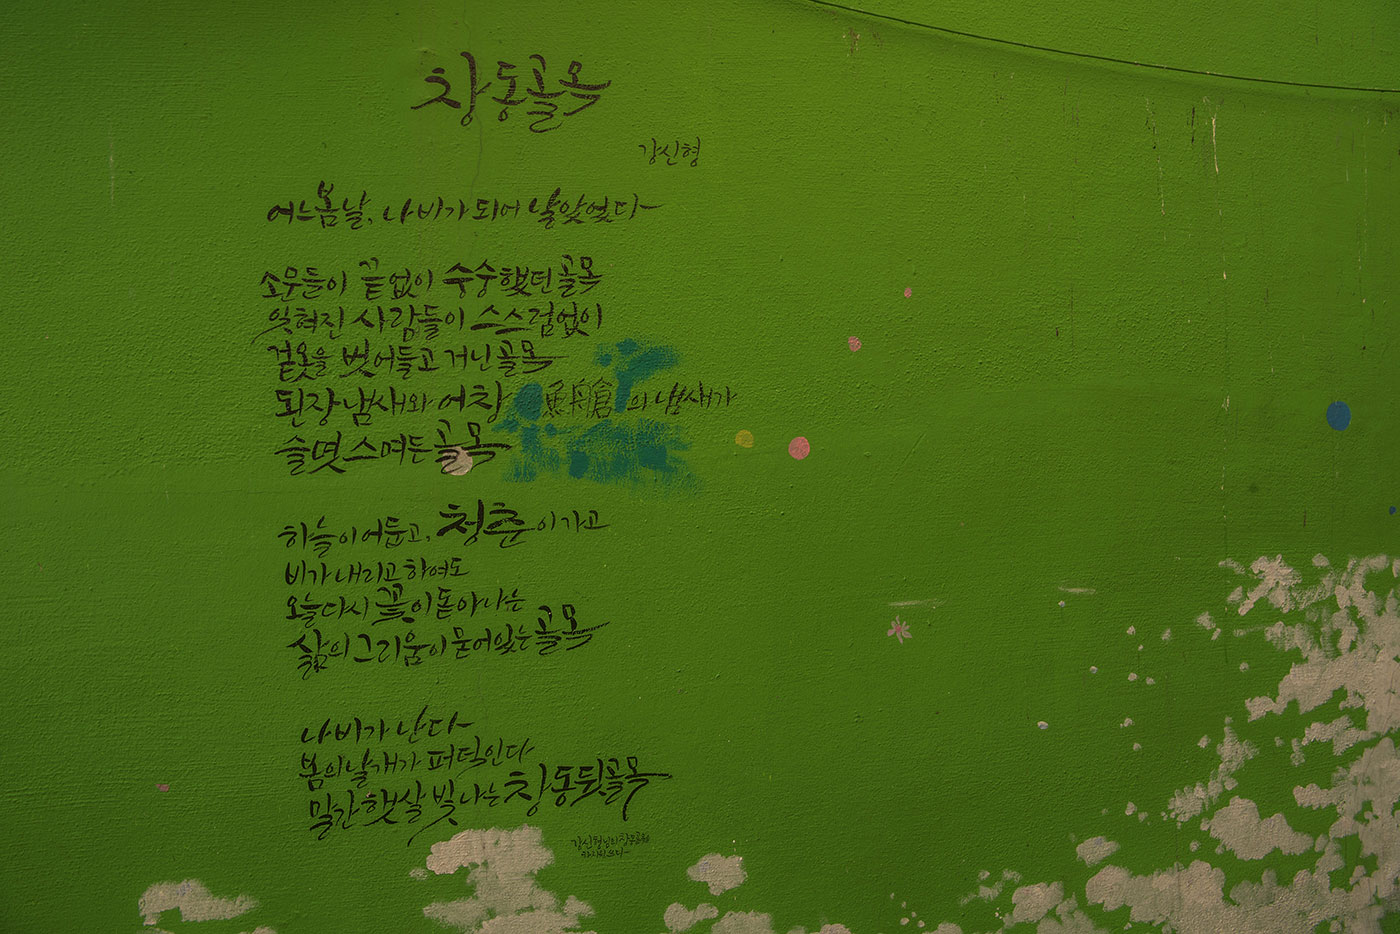 창동골목
강신형
어느 봄날, 나비가 되어 날았었다
소문들이 끝없이 숭숭했던 골목
잊혀진 사람들이 스스럼없이
겉옷을 벗어들고 거닌 골목
된장 냄새와 어창 魚艙의 냄새가
슬몃 스며든 골목
하늘이 어둡고, 청춘이 가고
비가 내리고 하여도
오늘 다시 꽃이 돋아나는
삶의 그리움이 묻어있는 골목
나비가 난다
봄의 날개가 퍼덕인다
말간 햇살 빛나는 창동 뒷골목
강신형님의 창동골목